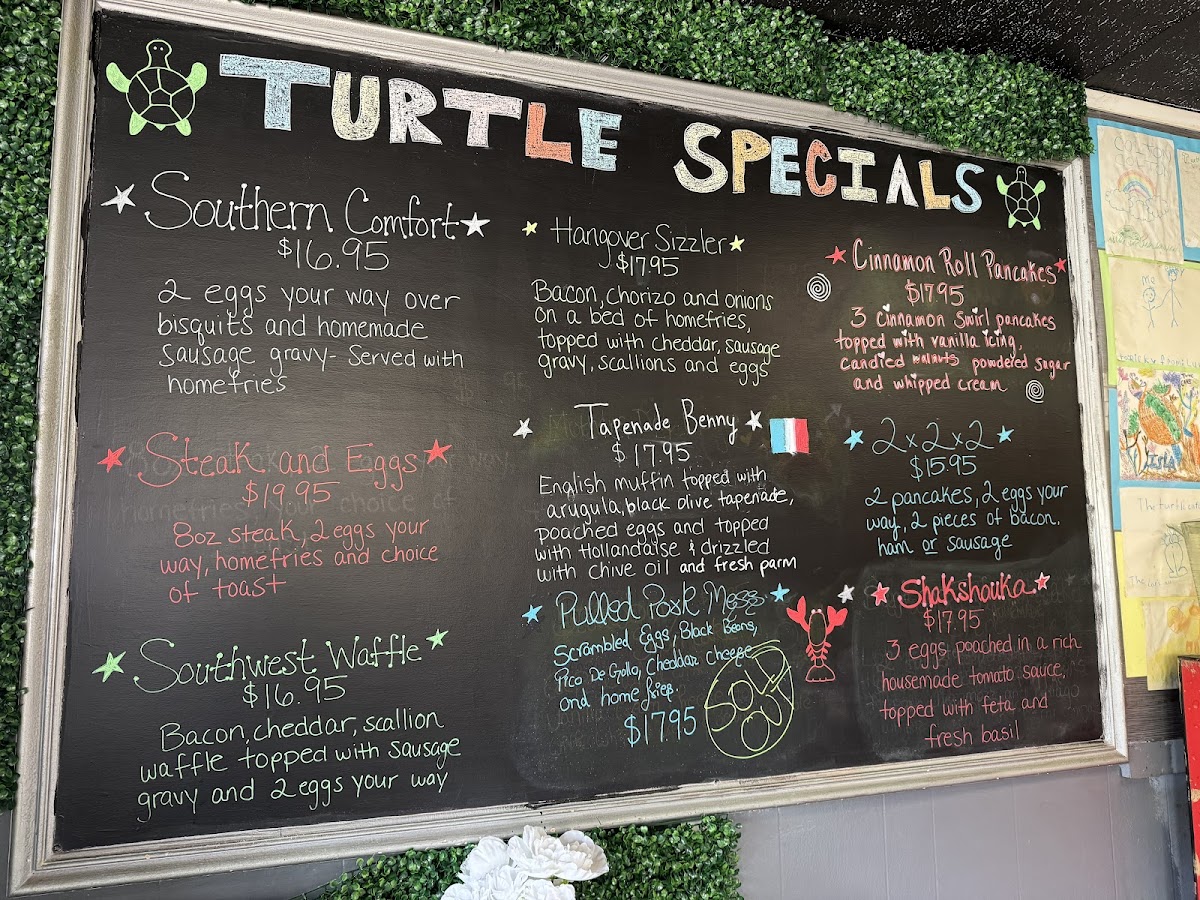 TURTLE SPECIALS
Southern Comfort
$16.95
2 eggs your way over
bisquits and homemade
sausage gravy - Served with
homefries
Steak and Eggs
$19.95
8oz steak, 2 eggs your
way, homefries and choice
of toast
Southwest Waffle
$16.95
Bacon, cheddar, scallion
waffle topped with sausage
gravy and 2 eggs your way
Hangover Sizzler
$17.95
Bacon, chorizo and onions
on a bed of homefries,
topped with cheddar, sausage
gravy, scallions and eggs
Tapenade Benny
$17.95
English muffin topped with
arugula, black olive tapenade,
poached eggs and topped
with Hollandaise & drizzled
with chive oil and fresh parm
Pulled Pork Mess
Scrambled Eggs, Black Beans,
Pico De Gallo, Cheddar cheese
and home fries.
$17.95
SOLD
OUT
Cinnamon Roll Pancakes
$17.95
3 cinnamon swirl pancakes
topped with vanilla icing,
candied walnuts powdered sugar
and whipped cream
2x2x2
$15.95
2 pancakes, 2 eggs your
way, 2 pieces of bacon.
ham or sausage
Shakshouka
$17.95
3 eggs poached in a rich
housemade tomato sauce,
topped with feta and
fresh basil
Me
Isla
The turtle